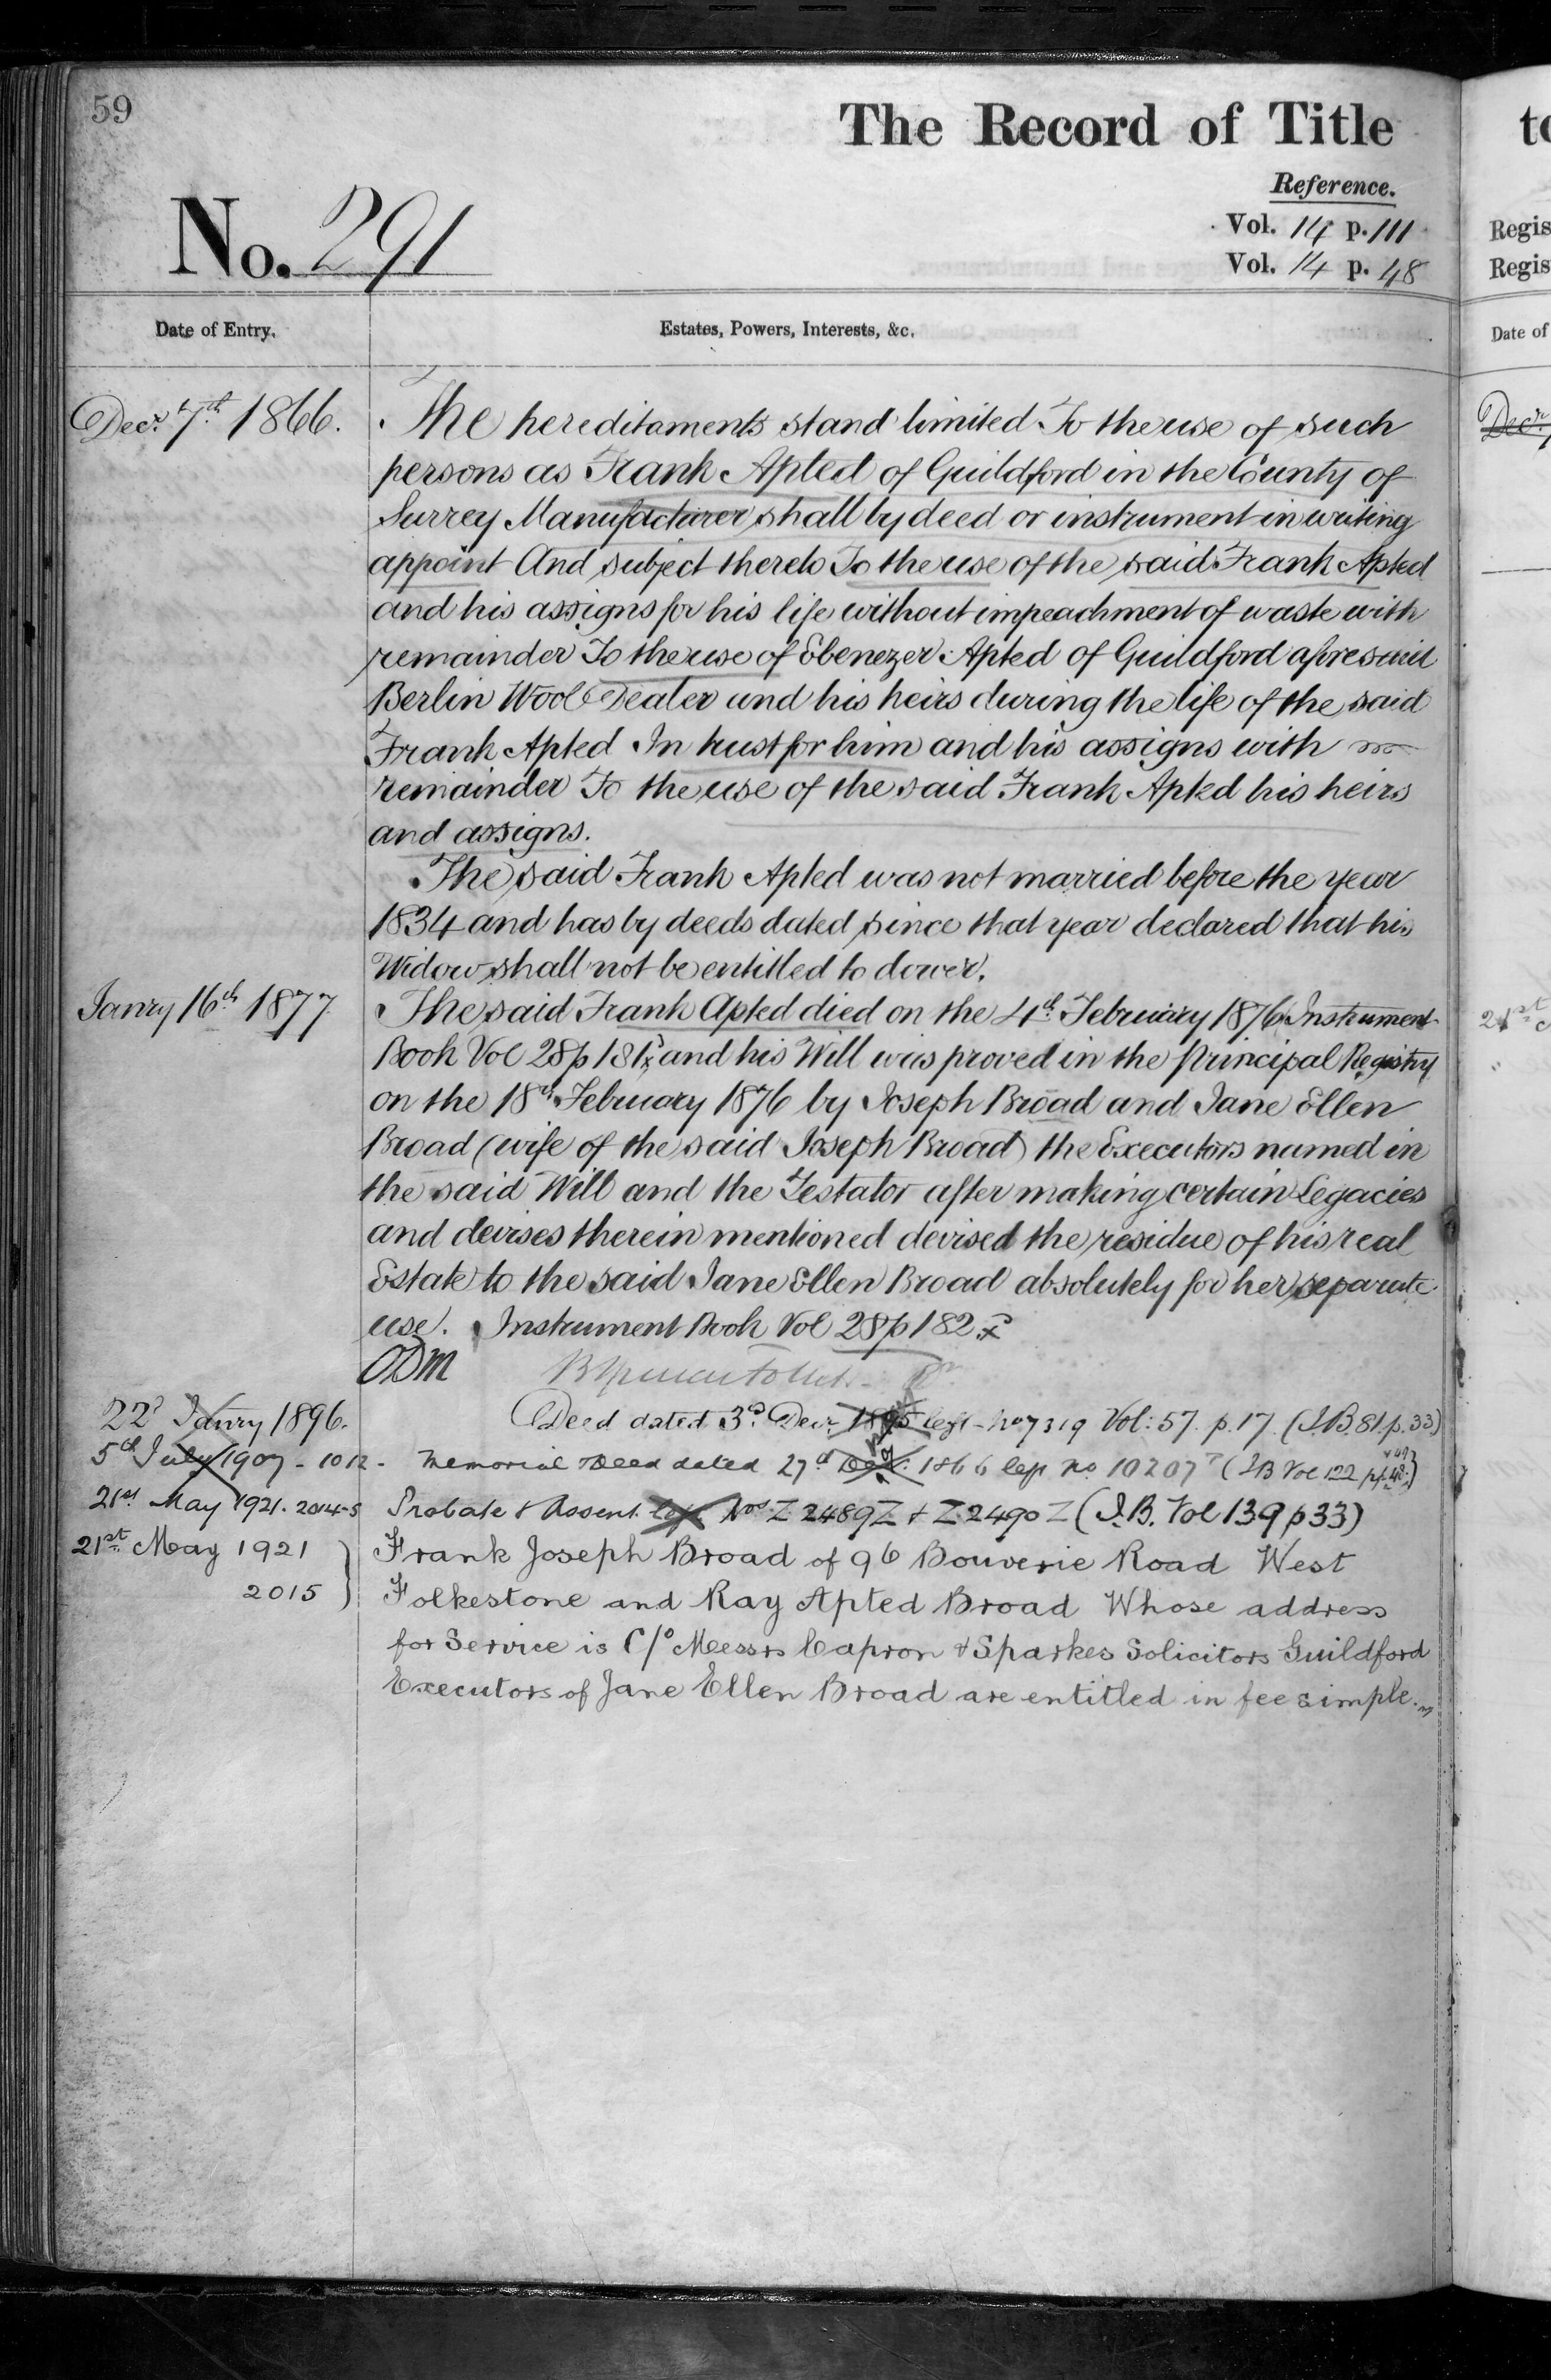 59
The Record of Title
Reference.
No. 291
Vol. 14 p. 111
Vol. 14 p. 48
Date of Entry.
Estates, Powers, Interests, &c.
Decr. 7th 1866.
The hereditaments stand limited To the use of such
persons as Frank Apted of Guildford in the County of
Surrey Manufacturer shall by deed or instrument in writing
appoint And subject thereto To the use of the said Frank Apted
and his assigns for his life without impeachment of waste with
remainder To the use of Ebenezer Apted of Guildford aforesaid
Berlin Wool Dealer and his heirs during the life of the said
Frank Apted In trust for him and his assigns with
remainder To the use of the said Frank Apted his heirs
and assigns.
The said Frank Apted was not married before the year
1834 and has by deeds dated since that year declared that his
Widow shall not be entitled to dower.
Janry 16th 1877
The said Frank Apted died on the 4th February 1876 Instrument
Book Vol 28 p 181 and his Will was proved in the Principal Registry
on the 18th February 1876 by Joseph Broad and Jane Ellen
Broad (wife of the said Joseph Broad) the Executors named in
the said Will and the Testator after making certain Legacies
and devises therein mentioned devised the residue of his real
Estate to the said Jane Ellen Broad absolutely for her separate
use. Instrument Book Vol 28 p 182
22d Janry 1896.
Deed dated 3d. Decr. 1895 left - No 7319 Vol: 57. p. 17. (I.B. 81. p. 33)
5th July 1907 - 1012 -
Memorial Deed dated 27th 1866 left No 10207 (IB Vol 122 pp. 48 + 49)
21st May 1921. 2014-5
Probate & Assent left Nos Z 2489Z + Z 2490Z (I.B. Vol 139 p 33)
21st May 1921
2015
Frank Joseph Broad of 96 Bouverie Road West
Folkestone and Ray Apted Broad Whose address
for Service is C/o Messrs Capron & Sparkes Solicitors Guildford
Executors of Jane Ellen Broad are entitled in fee simple.
to
Regis
Regis
Date of
Decr.
21st